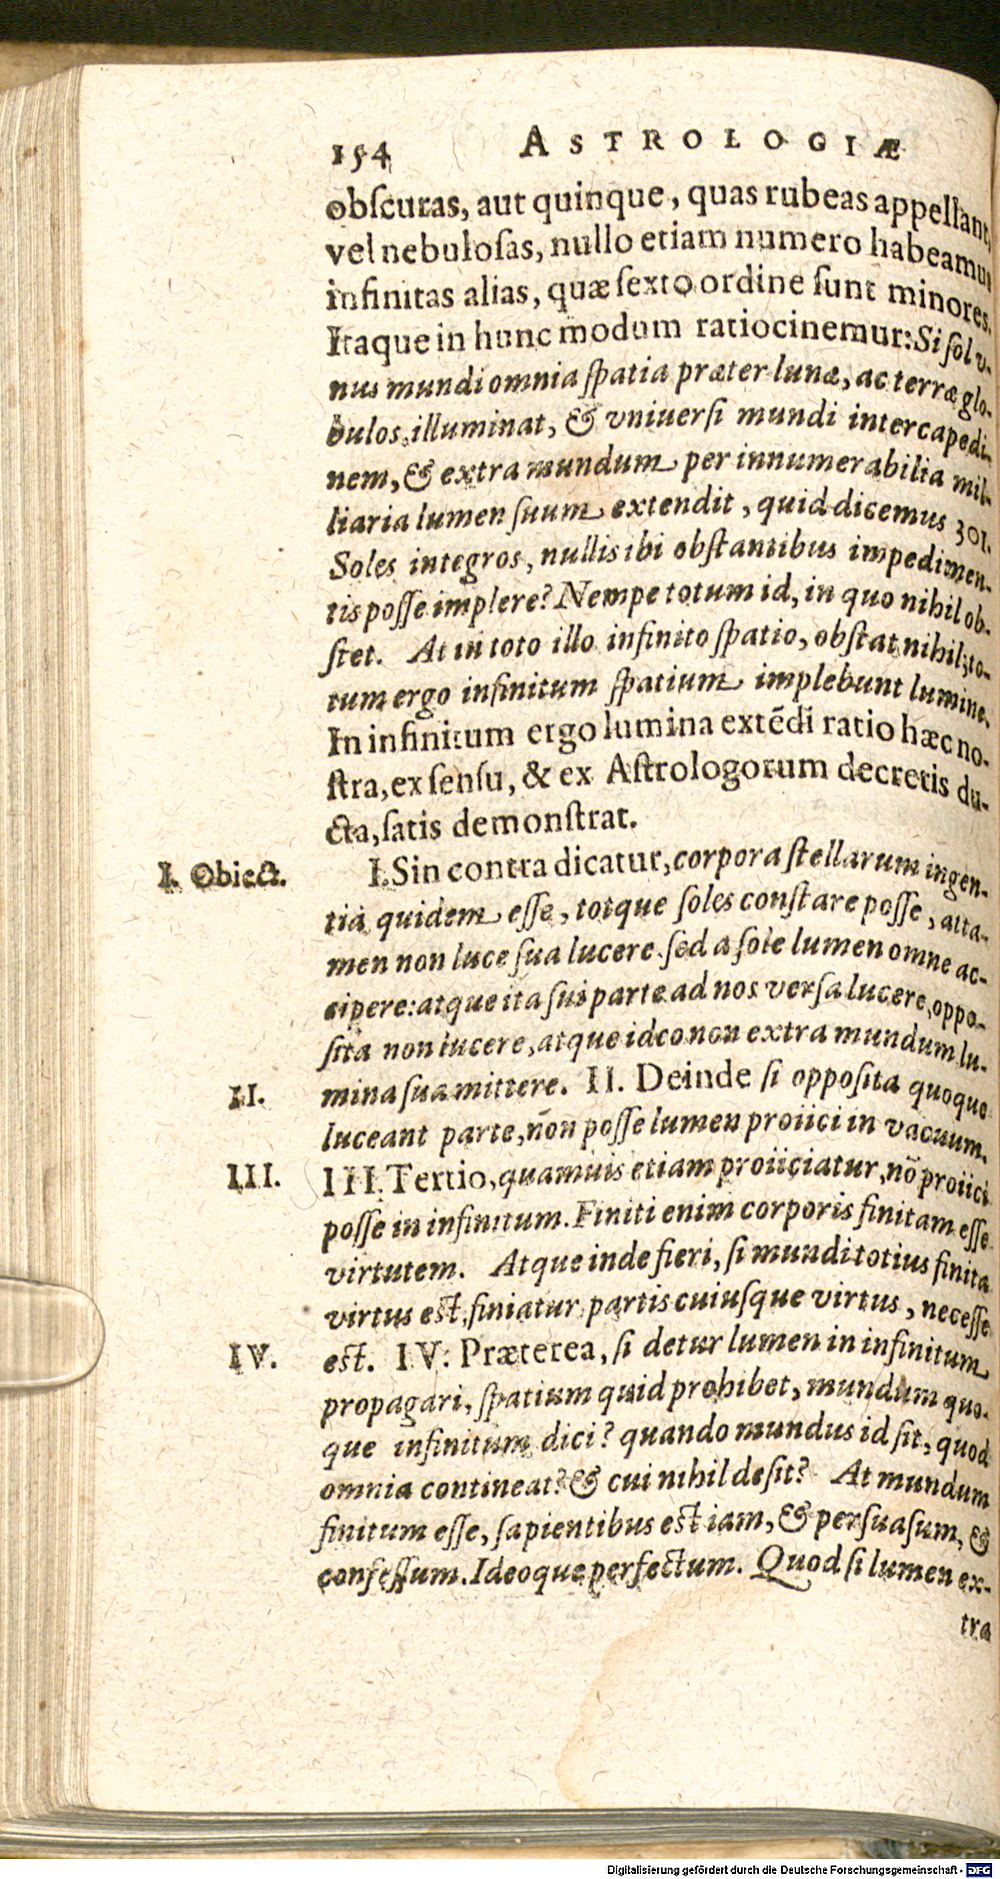 154 ASTROLOGIÆ
obſcuras, aut quinque, quas rubeas appellant,
vel nebuloſas, nullo etiam numero habeamus
infinitas alias, quæ ſexto ordine ſunt minores.
Itaque in hunc modum ratiocinemur: Si ſol v-
nus mundi omnia ſpatia præter lunæ, ac terræ glo-
bulos, illuminat, & vniuerſi mundi intercapedi-
nem, & extra mundum per innumerabilia mil-
liaria lumen ſuum extendit, quid dicemus 301.
Soles integros, nullis ibi obſtantibus impedimen-
tis poſſe implere? Nempe totum id, in quo nihil ob-
ſtet. At in toto illo infinito ſpatio, obſtat nihil; to-
tum ergo infinitum ſpatium implebunt lumine.
In infinitum ergo lumina extēdi ratio hæc no-
ſtra, ex ſenſu, & ex Aſtrologorum decretis du-
cta, ſatis demonſtrat.
I. Obiect. I. Sin contra dicatur, corpora ſtellarum ingen-
tia quidem eſſe, totque ſoles conſtare poſſe, atta-
men non luce ſua lucere ſed a ſole lumen omne ac-
cipere: atque ita ſui parte ad nos verſa lucere, oppo-
ſita non lucere, atque ideo non extra mundum lu-
II. mina ſua mittere. II. Deinde ſi oppoſita quoque
luceant parte, nōn poſſe lumen proiici in vacuum.
III. III. Tertio, quamuis etiam proiiciatur, nō proiici
poſſe in infinitum. Finiti enim corporis finitam eſſe
virtutem. Atque inde fieri, ſi mundi totius finita
virtus eſt, finiatur partis cuiuſque virtus, neceſſe
IV. eſt. IV. Præterea, ſi detur lumen in infinitum
propagari, ſpatium quid prohibet, mundum quo-
que infinitum dici? quando mundus id ſit, quod
omnia contineat? & cui nihil deſit? At mundum
finitum eſſe, ſapientibus eſt iam, & perſuaſum, &
confeſſum. Ideoque perfectum. Quod ſi lumen ex-
tra
Digitalisierung gefördert durch die Deutsche Forschungsgemeinschaft - DFG